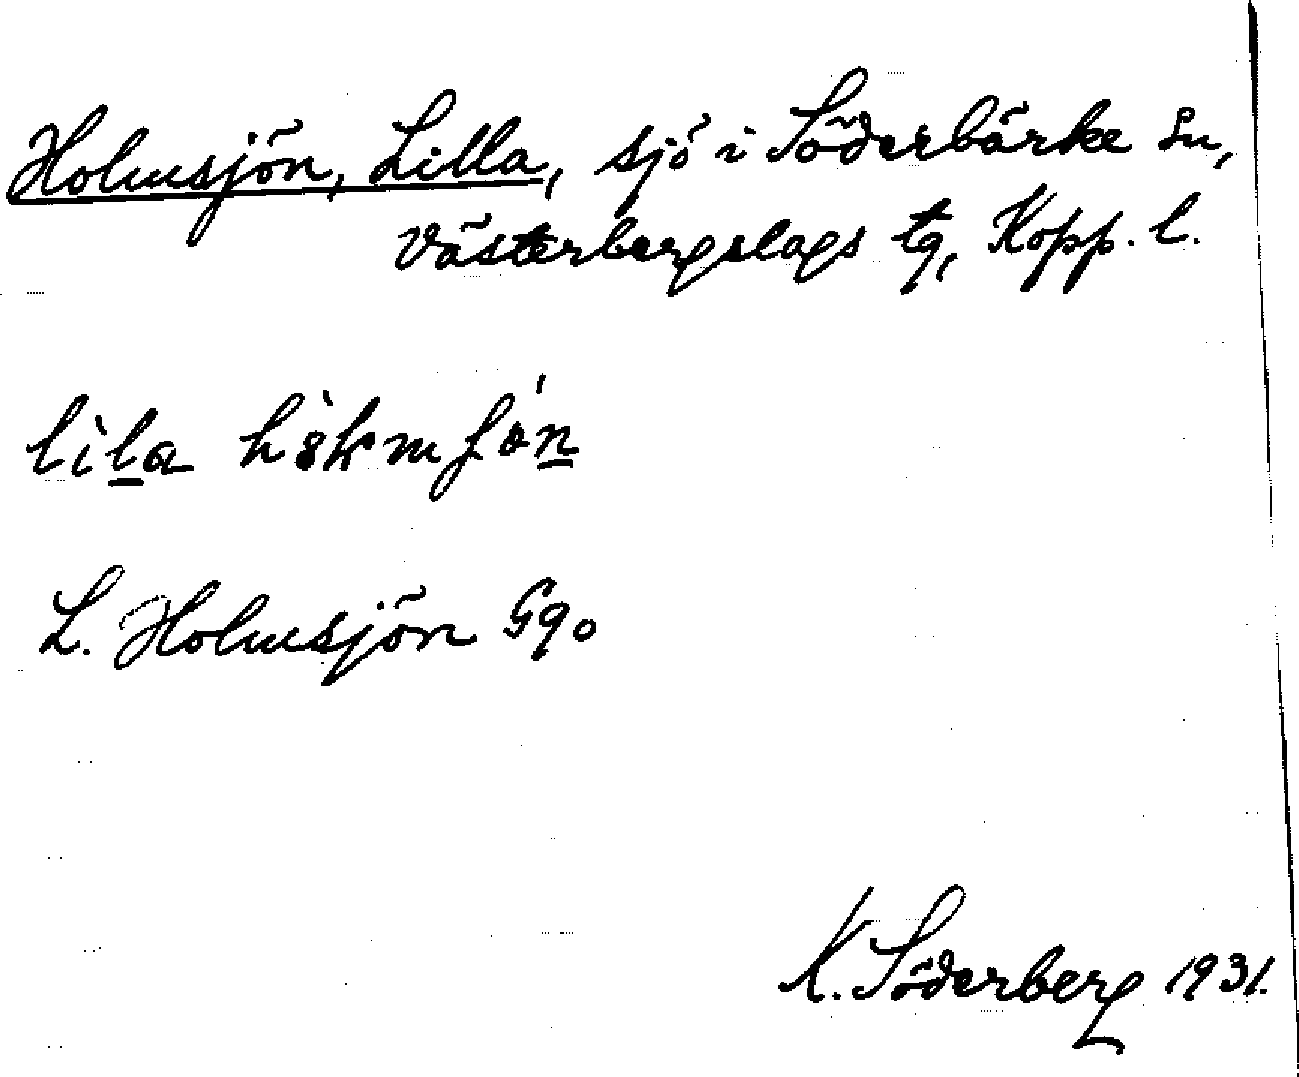 Holmsjön, Lilla, sjö i Söderbärke sn,
Västerbergslags tg, Kopp. l.
lìla
L. Holmsjön Gqo
K. Söderberg 1931.